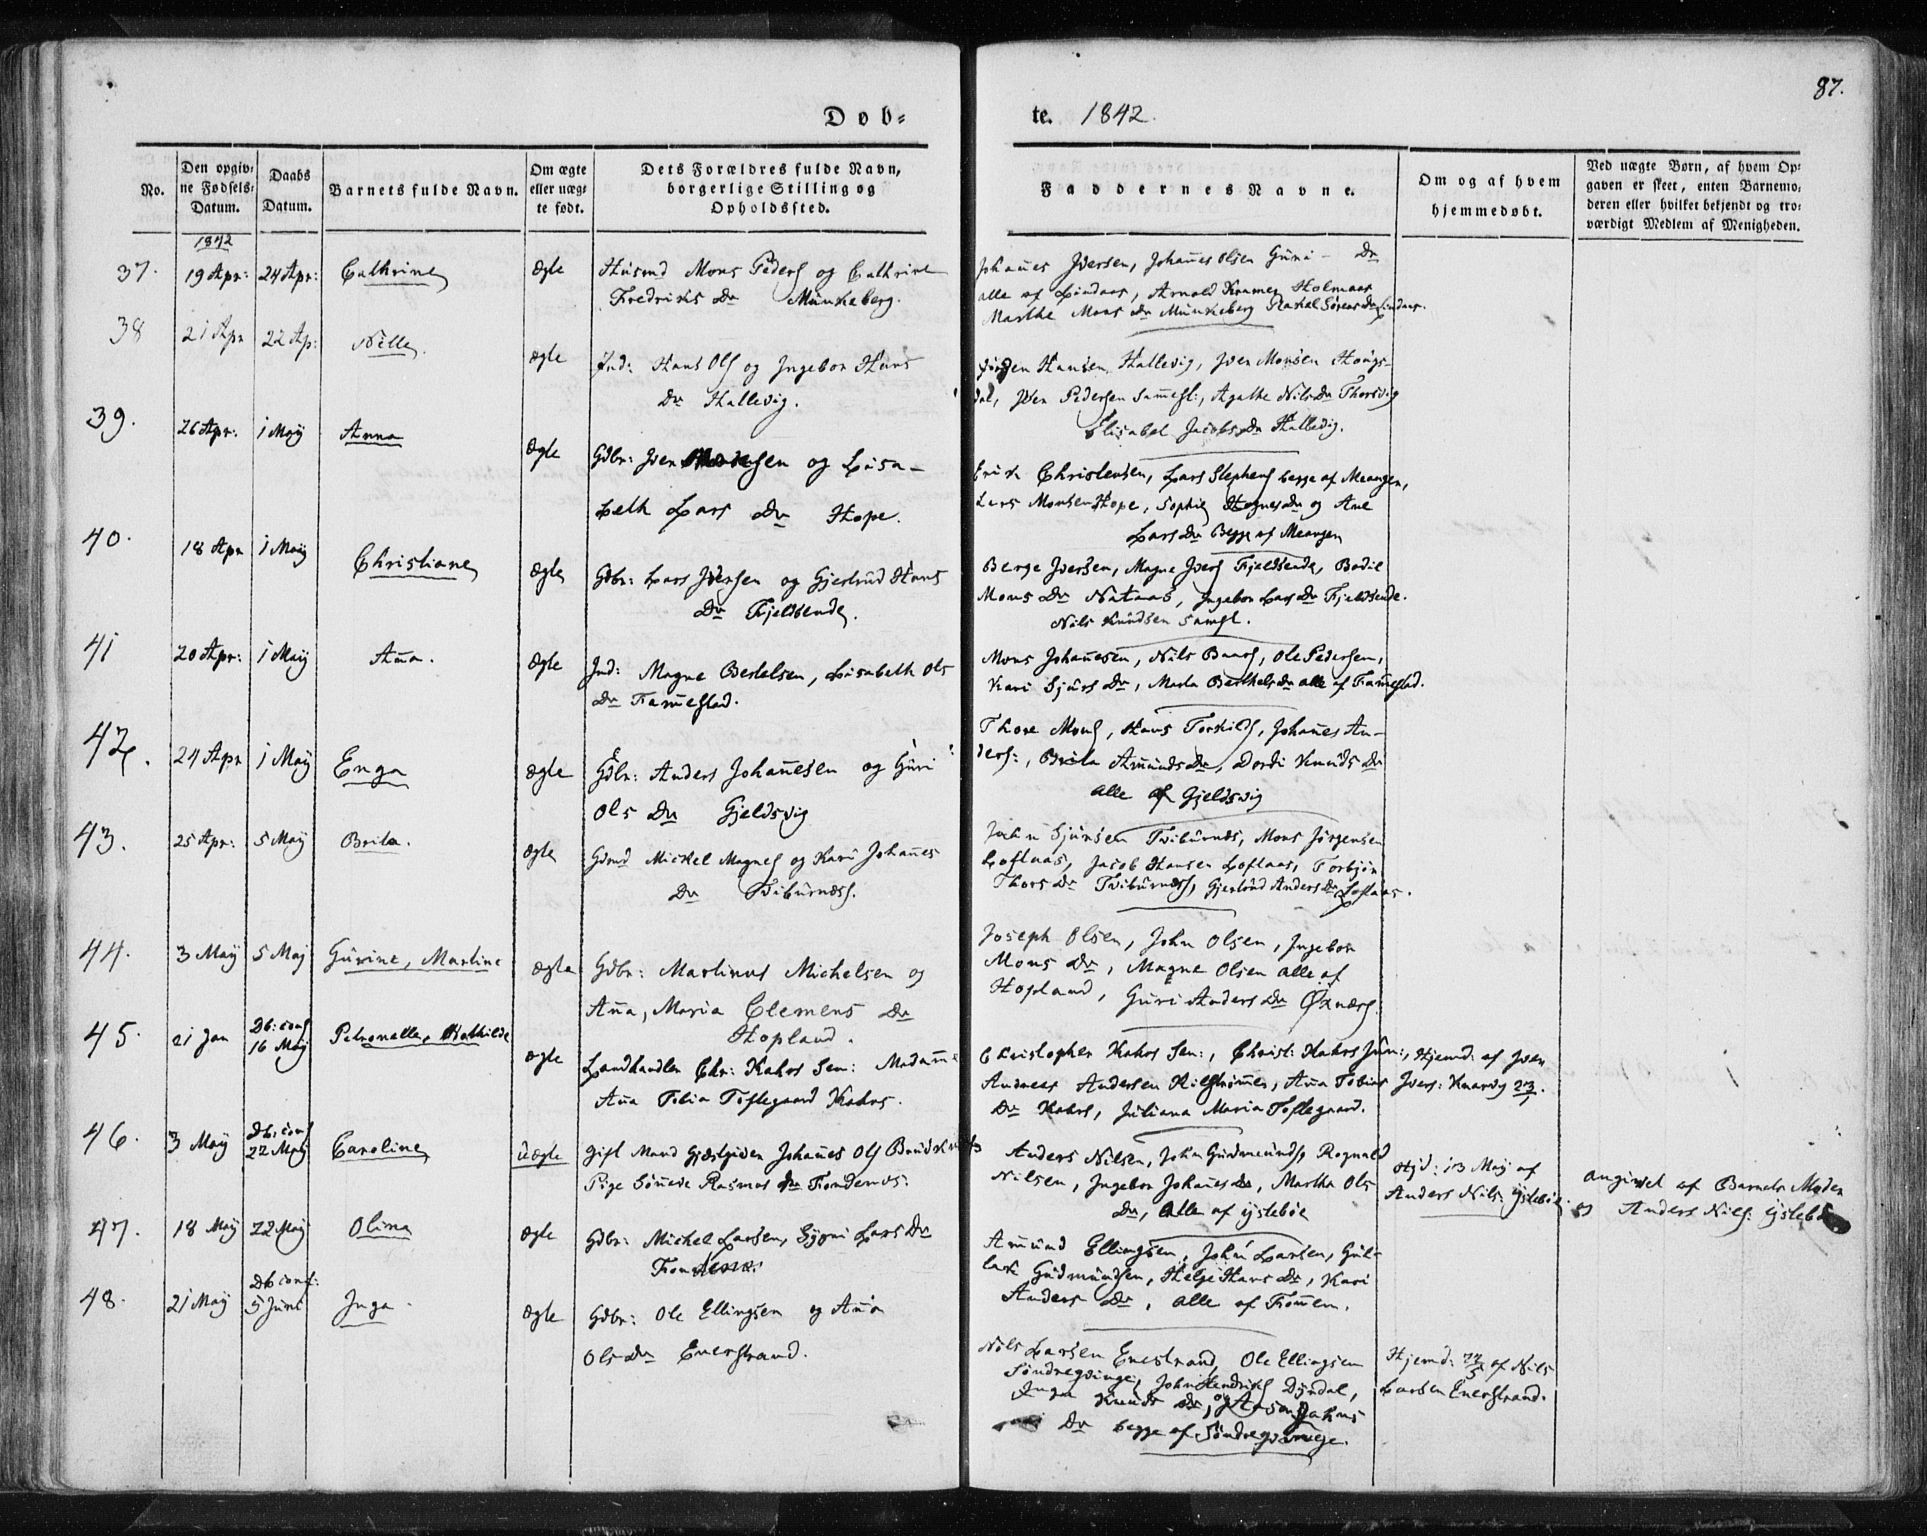 87.
Døb-
te. 1842.
No.
Den opgiv-
ne Fødsels-
Datum.
Daabs
Datum.
Barnets fulde Navn.
Om ægte
eller uæg-
te født.
Dets Forældres fulde Navn,
borgerlige Stilling og
Opholdssted.
Faddernes Navne.
Om og af hvem
hjemmedøbt.
Ved uægte Børn, af hvem Op-
gaven er skeet, enten Barnemo-
deren eller hvilket bekjendt og tro-
værdigt Medlem af Menigheden.
1842
37. 19 Apr: 24 Apr: Cathrine Ægte Husmd Mons Peders og Cathrine
Fredriks Dr Munkeberg.
Johañes Iversen, Johañes Olsen Guri - Dr
alle af Lindaas, Arnold Kramer Holmaas
Marthe Mons Dr Munkeberg Rakel Sørens Dr Lindaas.
38 21 Apr 22 Ap: Nille. Ægte Ind: Hans Ols og Ingebor Hans
Dr Hallevig.
Hansen Hallevig, Iver Monsen Hougs-
dal, Iver Pedersen Samest:, Agathe Nils Dr Thorsvig
Elisabet Jacobs Dr Hallevig.
39. 26 Apr: 1 Maÿ Anna Ægte Gdbr: Iver og Lisa-
beth Lars Dr Hope.
Erik Christensen, Lars Stephens begge af Meangen,
Lars Monsen Hope, Sophie Hognes Dr og Ane
Lars Dr begge af Meangen
40. 18 Apr 1 Maÿ Christiane Ægte Gdbr: Lars Iversen og Gjertrud Hans
Dr Fjeldsende.
Berge Iversen, Magne Ivers Fjeldsende, Bodil
Mons Dr Nataas, Ingebor Lars Dr Fjeldsende.
Nils Knudsen Samst.
41 20 Apr: 1 Maÿ Aña. Ægte Ind: Magne Bertelsen, Lisabeth Ols
Dr Fañestad.
Mons Johañesen, Nils Baars, Ole Pedersen,
Kari Sjurs Dr, Marta Berthels Dr alle af Fañestad.
42. 24 Apr 1 Maÿ Enga Ægte Gdbr: Anders Johañesen og Guri
Ols Dr Gjeldsvig
Thore Mons, Hans Torkilds, Johañes An-
ders:, Brita Amunds Dr, Dordi Knuds Dr
alle af Gjeldsvig
43. 25 Apr: 5 Maÿ Brita. Ægte Gdmd Mickel Magnes og Kari Johañes
Dr Tviburnæss.
Sjursen Tviburnæs, Mons Jörgensen
Loftaas, Jacob Hansen Loftaas, Torbjør
Thors Dr Tviburnæss, Gjertrud Anders Dr Loftaas.
44. 3 Maÿ 5 Maj Gurine, Martine Ægte Gdbr: Martinus Michelsen og
Aña, Maria Clemens Dr
Hopland.
Joseph Olsen, John Olsen, Ingebor
Mons Dr, Magne Olsen alle af
Hopland, Guri Anders Dr Øxnæss.
45. 21 Jan Db: conf 16 Maÿ Petronelle, Bothilde Ægte Landhandler Chr: Kahrs Sen: Madame
Aña Tobia Toftegaard Kahrs.
Christopher Kahrs Sen:, Christ: Kahrs Jun:,
Andreas Andersen Kilstrømen, Aña Tobias
Dr Kahrs, Juliana Maria Toftegaard.
Hjemd: af Iver
Ivers: Knarvig 23/1.
46. 3 Maÿ Db: conf 22 Maÿ Caroline Uægte Gift Mand Gjæstgiver Johañes Ols
Pige Søñeve Rasmus Dr
Anders Nilsen, John Gudmunds, Rognald
Nilsen, Ingebor Johañes Dr, Martha Ols
Dr, alle af Ystebøe
Hjd: 13 Maÿ af
Anders Nils: Ystebøe
angivet af Barnets Moder
og Anders Nils: Ystebøe
47. 18 Maÿ 22 Maÿ Olina Ægte Gdbr: Mickel Larsen, Sygni Lars Dr
Amund Ellingsen, John Larsen, Gul-
lak Gudmundsen, Helge Hans Dr, Kari
Anders Dr, alle af Fomen.
48. 21 Maÿ Db conf: 5 Juni Inga. Ægte Gdbr: Ole Ellingsen og Aña
Ols Dr Enerstrand.
Nils Larsen Enestrand, Ole Ellingsen
John Hendriks Dyrdal,
Inga Knuds Dr, og
Dr begge af
Hjemd: 22/5 af Nils
Larsen Enerstrand.